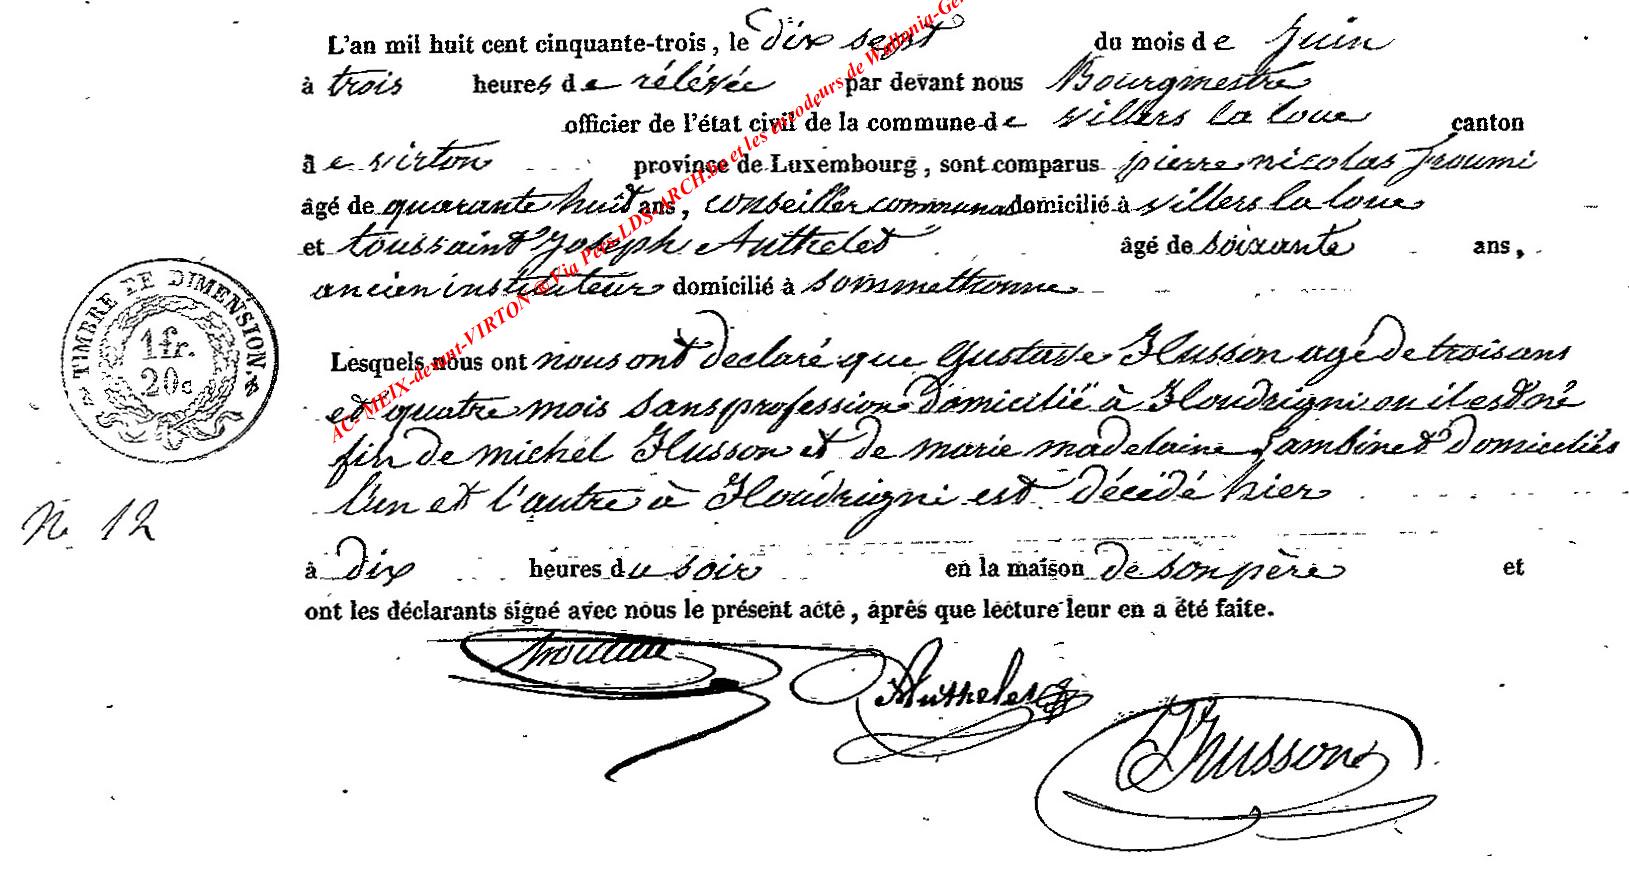 L'an mil huit cent cinquante-trois, le dix sept du mois de juin
à trois heures de rélévée par devant nous Bourgmestre
officier de l'état civil de la commune de villers la loue canton
de virton province de Luxembourg, sont comparus pierre nicolas froumi
âgé de quarante huit ans, conseiller communal domicilié à villers la loue
et toussaint Joseph Authelet âgé de soixante ans,
ancien instituteur domicilié à sommethonne
Lesquels nous ont nous ont declaré que Gustave Husson agé de trois ans
et quatre mois sans profession domicilié à Houdrigni ou il est né
fils de michel Husson et de marie madelaine Lambinet domiciliés
l'un et l'autre à Houdrigni est décédé hier
à dix heures du soir en la maison de son père et
ont les déclarants signé avec nous le présent acte, après que lecture leur en a été faite.
TIMBRE DE DIMENSION.
1 fr.
20 c
N 12
Authelet
Husson
AC-MEIX-devant-VIRTON ® Via Pers-LDS-ARCH.be et les encodeurs de Wallonia-Ge